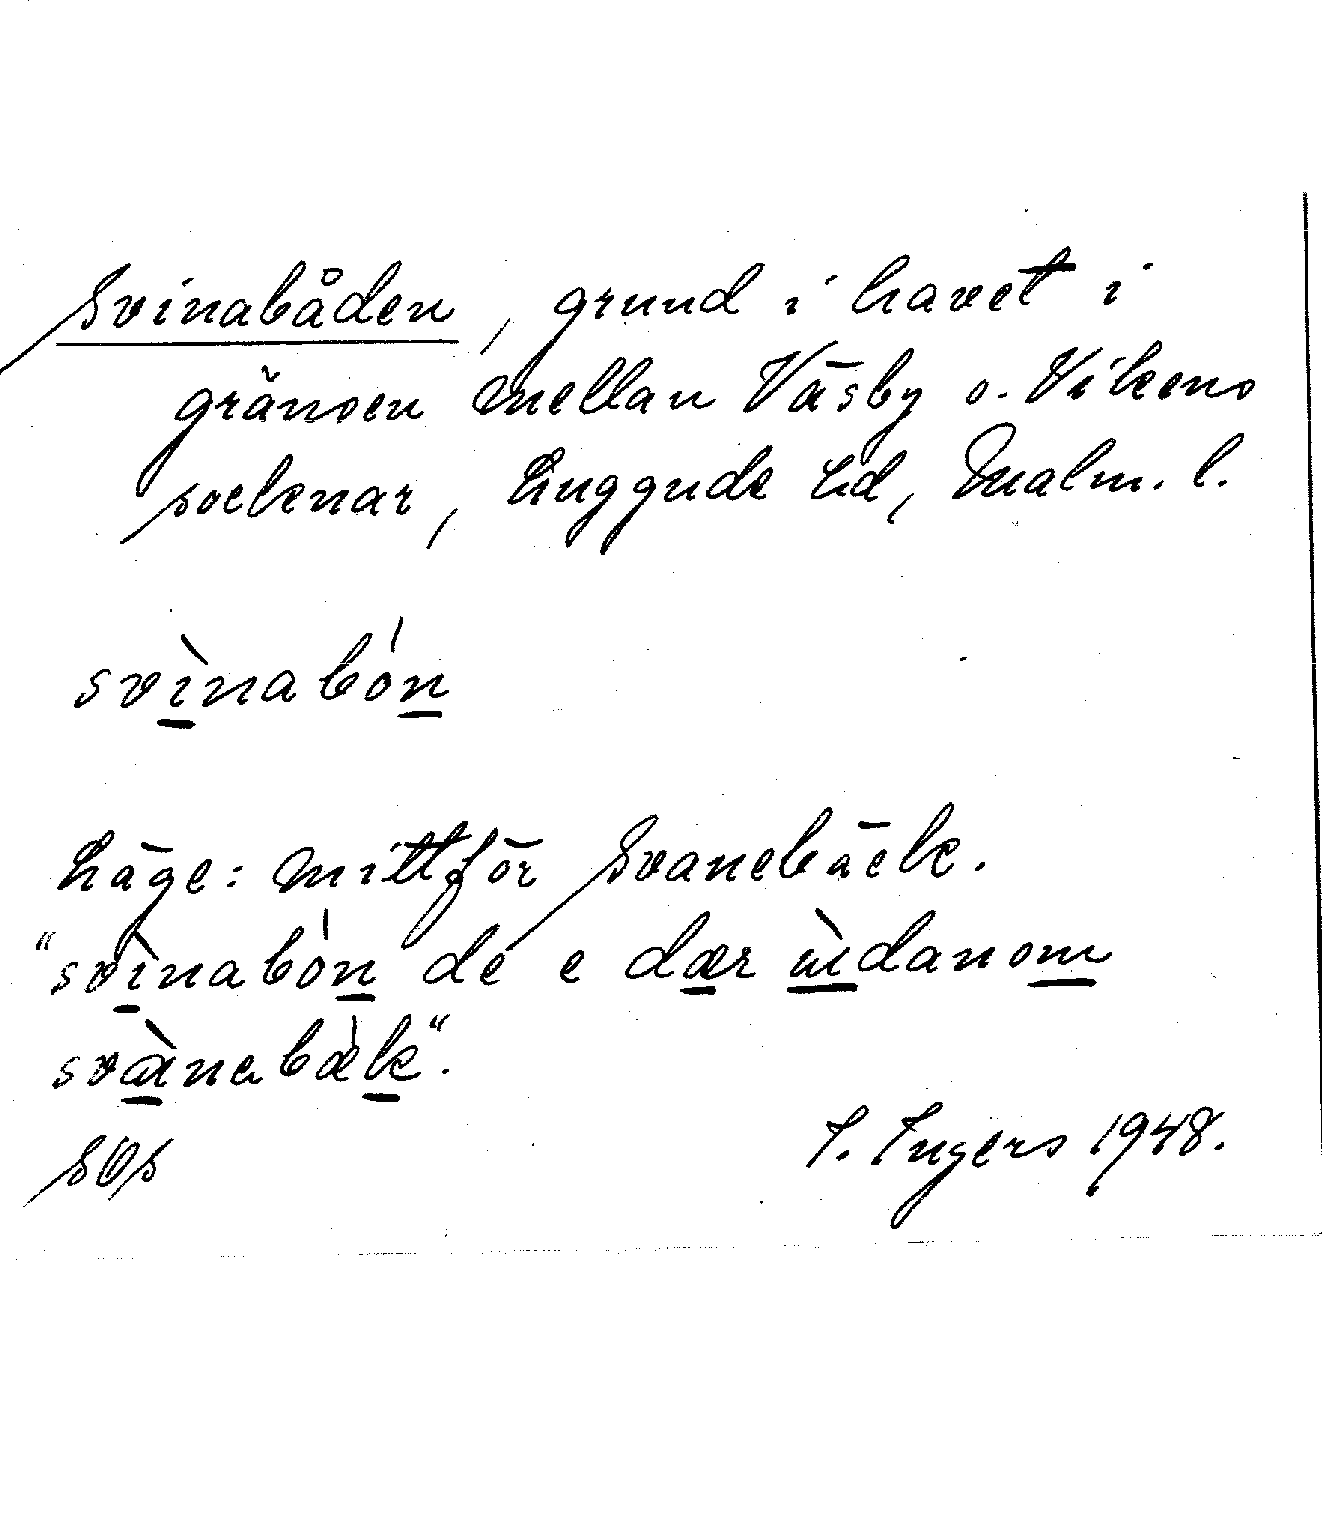 Svinabåden, grund i havet i
gränsen mellan Väsby o. Vikens
socknar, Luggude hd, Malm. l.
svìnabón
Läge: mittför Svanebäck.
"svìnabón de e dær ùdanom
svànabæk".
I. Ingers 1948.